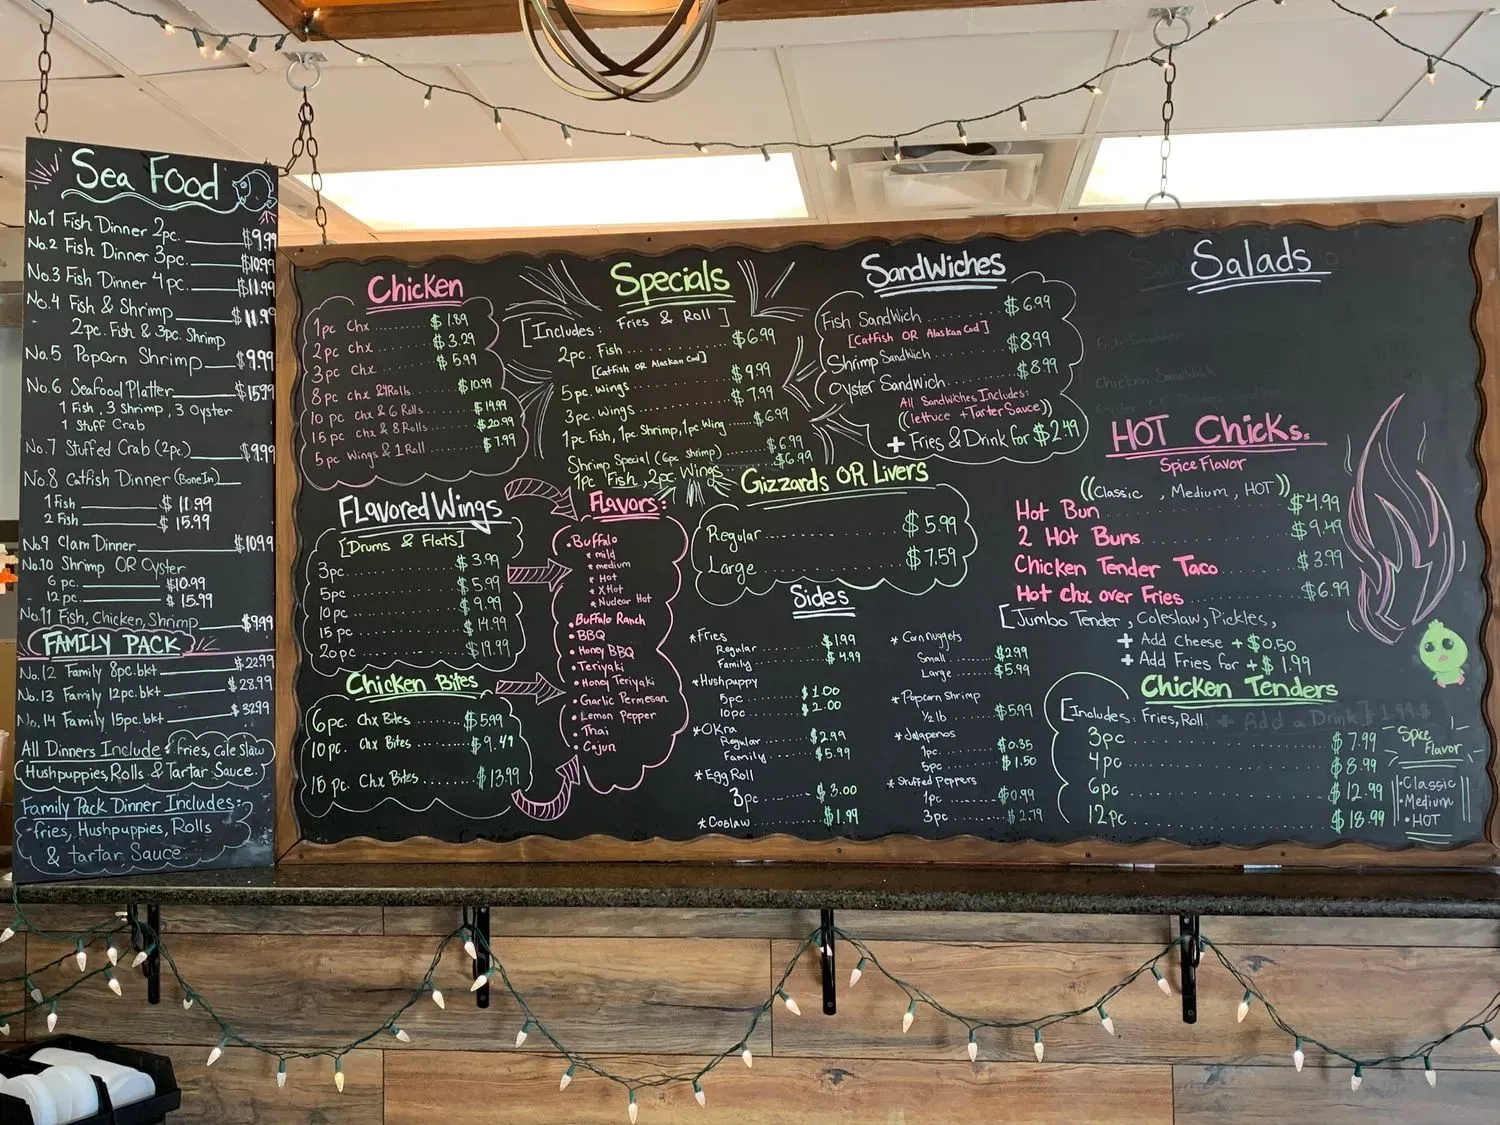 Sea Food
No.1 Fish Dinner 2pc. $9.99
No.2 Fish Dinner 3pc. $10.99
No.3 Fish Dinner 4pc. $11.99
No.4 Fish & Shrimp $11.99
2pc. Fish & 3pc. Shrimp
No.5 Popcorn Shrimp $9.99
No.6 Seafood Platter $15.99
1 Fish, 3 Shrimp, 3 Oyster
1 Stuff Crab
No.7 Stuffed Crab (2pc.) $9.99
No.8 Catfish Dinner (Bone In)
1 Fish $11.99
2 Fish $15.99
No.9 Clam Dinner $10.99
No.10 Shrimp OR Oyster
6 pc. $10.99
12 pc. $15.99
No.11 Fish, Chicken, Shrimp $9.99
FAMILY PACK
No.12 Family 8pc.bkt $22.99
No.13 Family 12pc.bkt $28.99
No.14 Family 15pc.bkt $32.99
All Dinners Include: fries, cole slaw
Hushpuppies, Rolls & Tartar Sauce.
Family Pack Dinner Includes:
fries, Hushpuppies, Rolls
& tartar Sauce.
Chicken
1pc chx $1.89
2pc chx $3.29
3pc chx $5.99
8pc chx &4Rolls $10.99
10 pc chx & 6 Rolls $14.99
15 pc chx & 8 Rolls $20.99
5 pc wings & 1 Roll $7.99
FLavored Wings
[Drums & Flats]
3pc $3.99
5pc $5.99
10pc $9.99
15pc $14.99
20pc $19.99
Chicken Bites
6pc. Chx Bites $5.99
10pc. Chx Bites $9.49
15 pc. Chx Bites $13.99
Specials
[Includes: Fries & Roll]
2pc. Fish $6.99
[Catfish OR Alaskan Cod]
5pc. Wings $9.99
3pc. Wings $7.99
1pc Fish, 1pc. Shrimp, 1pc. Wing $6.99
Shrimp Special (6pc shrimp) $6.99
1pc Fish, 2pc Wings $6.99
Flavors:
• Buffalo
* mild
* medium
* Hot
* X Hot
* Nuclear Hot
• Buffalo Ranch
• BBQ
• Honey BBQ
• Teriyaki
• Honey Teriyaki
• Garlic Permesan
• Lemon Pepper
• Thai
• Cajun
SandWiches
Fish SandWich $6.99
[Catfish OR Alaskan Cod]
Shrimp SandWich $8.99
Oyster SandWich $8.99
All Sandwiches Includes:
((lettuce + Tarter Sauce))
+ Fries & Drink for $2.49
Gizzards OR Livers
Regular $5.99
Large $7.59
Sides
* Fries
Regular $1.99
Family $4.99
* Hushpuppy
5pc $1.00
10pc $2.00
* OKra
Regular $2.99
Family $5.99
* Egg Roll
3pc $3.00
* Coslaw $1.99
* Cornnuggets
Small $2.99
Large $5.99
* Popcorn Shrimp
1/2 lb $5.99
* Jalapenos
1pc $0.35
5pc $1.50
* Stuffed Peppers
1pc $0.99
3pc $2.79
Salads
Fish Sandwich
Chicken Sandwich
HOT Chicks.
Spice Flavor
((Classic, Medium, HOT))
Hot Bun $4.99
2 Hot Buns $9.49
Chicken Tender Taco $3.99
Hot chx over Fries $6.99
[Jumbo Tender, Coleslaw, Pickles,
+ Add Cheese +$0.50
+ Add Fries for +$1.99
Chicken Tenders
[Includes: Fries, Roll, + Add a Drink] 1.99$
3pc $7.99
4pc $8.99
6pc $12.99
12pc $18.99
Spice
Flavor
• Classic
• Medium
• HOT